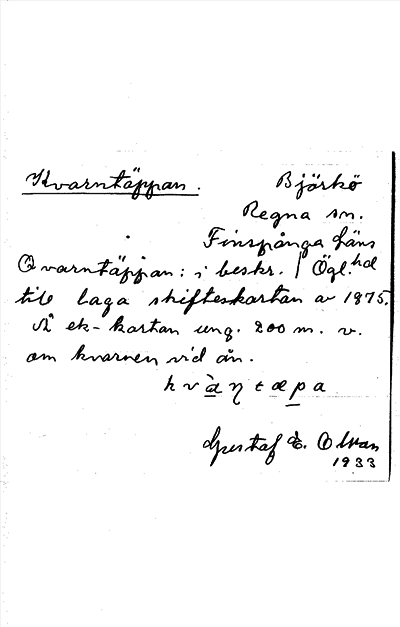 Kvarntäppan. Björkö
Regna sn.
Finspånga läns
hd
Qvarntäppan: i beskr. / Ögl.
till laga skifteskartan av 1875.
Å ek-kartan ung. 200 m. v.
om kvarnen vid ån.
Gustaf E. Olvan
1933